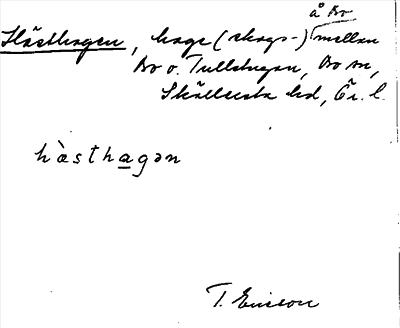 å Bo
Hästhagen, hage (skogs-) mellan
Bo o. Tullstugan, Bo sn,
Sköllersta hd, Ör. l.
hàsthagən
T. Ericson